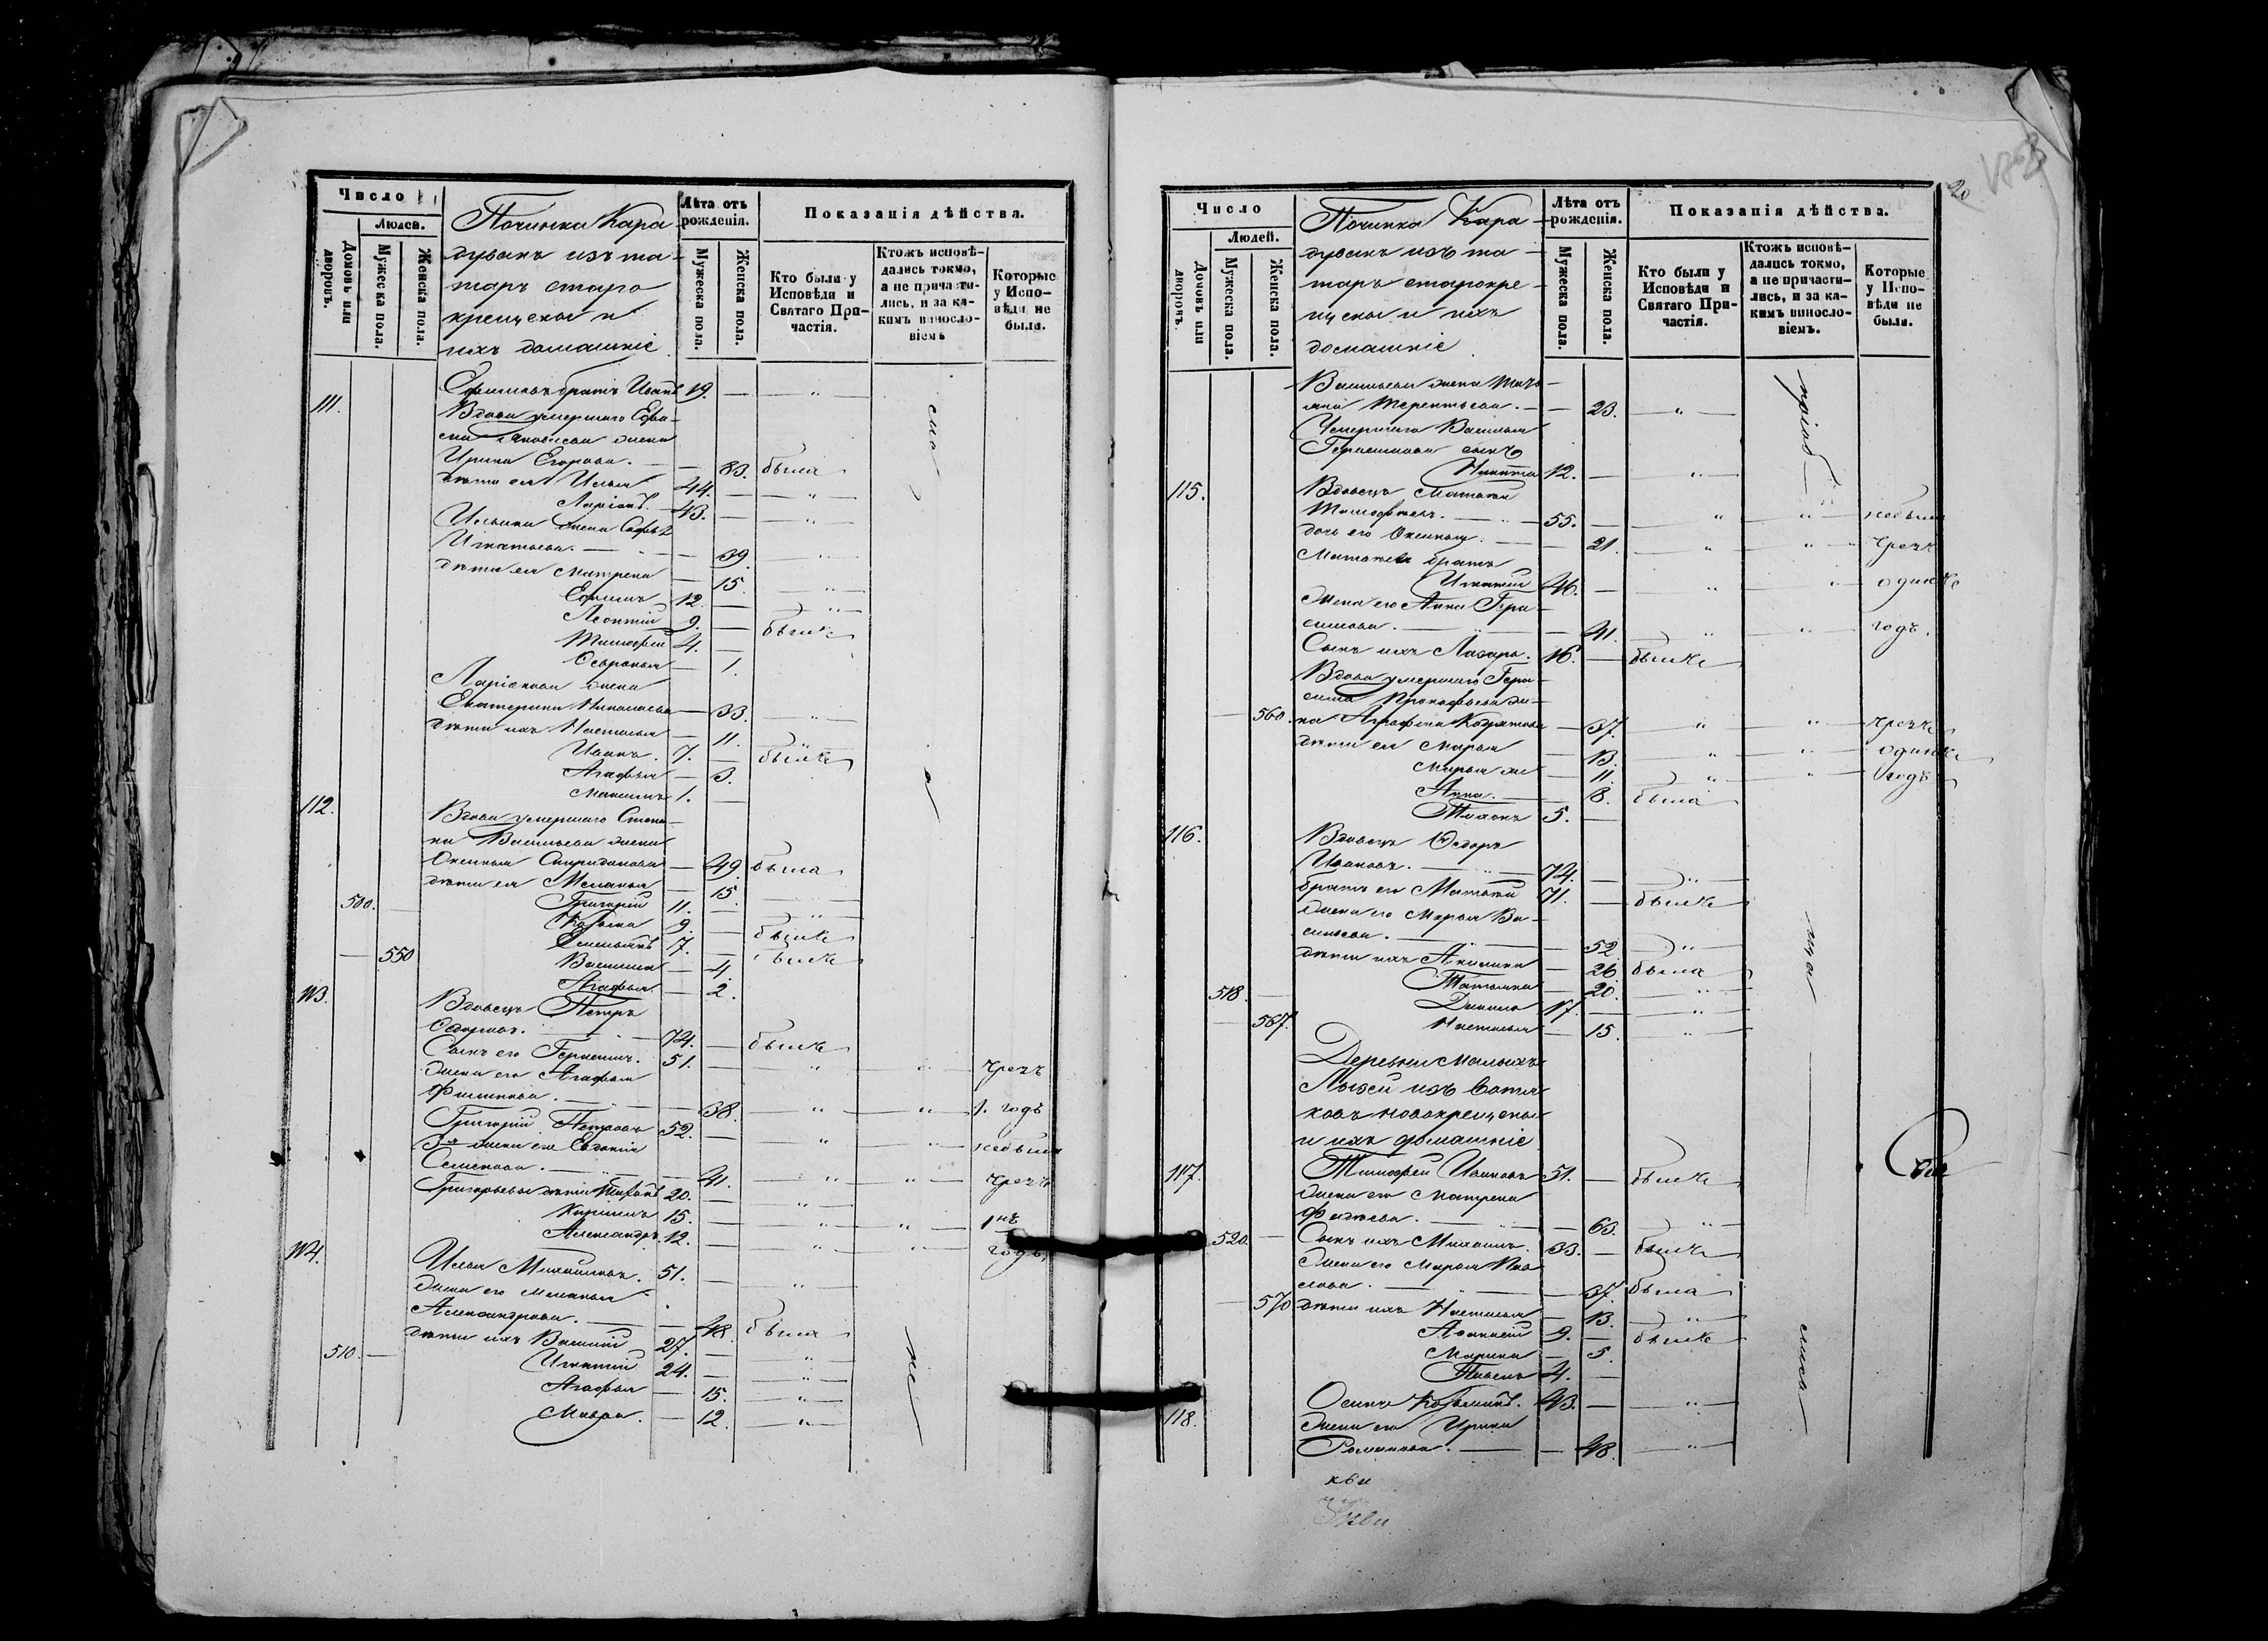 Число
Людей.
Домовъ или дворовъ.
Мужеска пола.
Женска пола.
Починка Кара-
дуванъ изъ та-
таръ старо
крещены и
ихъ домашніе
Лѣта отъ рожденія.
Мужеска пола.
Женска пола.
Показанія дѣйства.
Кто были у
Исповѣди и
Святаго При-
частія.
Ктожъ исповѣ-
дались токмо,
а не причасти-
лись, и за ка-
кимъ винослo-
віемъ
Которые
у Испо-
вѣди не
были.
Ефимовъ братъ Иванъ 19. — „
111. Вдова умершаго
жена
Ирина Егорова. — 83. была
дѣти ея Илья 44. — „
Ларіонъ. 43. — „
Ильина жена Софья
Игнатьева. — 39. „
дѣти ея Матрена — 15. „
Ефимъ 12. — „
Леонтій 9. — были
Тимофей 4. —
— 1.
Ларіонова жена
Екатерина Николаева — 33. „
дѣти ихъ Настасья — 11. „
Иванъ. 7. — были
Агафья — 3.
Максимъ 1. —
112. Вдова умершаго Степа-
на Васильева жена
Оксинья Спиридонова — 49. была
дѣти ея Меланья — 15.
500. Григорій 11. — „
Козьма 9. — были
Емельянъ 7. — были
550 — 4.
Агафья. — 2.
113. Вдовецъ Петръ
Ѳедоровъ. 74. — былъ
Сынъ его Герасимъ. 51. — „ „ чрезъ
жена его Агафья
Филипова. — 38. „ „ 1. годъ
Григорій Петровъ 52. — „ „ небыли
3я жена его Евдокія
Семенова. — 41. „ „ чрезъ
Григорьевы дѣти 20. — „
15. — „ „ 1нъ
Александръ. 12. — „ „ годъ.
114. Илья Михайловъ. 51. — „
жена его Меланья
Александрова. — 48. была
дѣти ихъ Василій 27. — „
510. Игнатій 24. — „
Агафья — 15. „
Мавра. — 12. „
20
Число
Людей.
Домовъ или дворовъ.
Мужеска пола.
Женска пола.
Починка Кара-
дуванъ изъ та-
таръ старокре-
щены и ихъ
домашніе
Лѣта отъ рожденія.
Мужеска пола.
Женска пола.
Показанія дѣйства.
Кто были у
Исповѣди и
Святаго При-
частія.
Ктожъ исповѣ-
дались токмо,
а не причасти-
лись, и за ка-
кимъ винослo-
віемъ.
Которые
у Испо-
вѣди не
были.
Васильева жена Тать-
яна Терентьева. — 23. „
Умершаго Василья
Герасимова сынъ
Никита 12. — „
115. Вдовецъ Матвѣй
Тимофѣевъ. 55. — „ „ небыли
дочь его Оксинья. — 21. „ „ чрезъ
Матвѣевъ братъ
Игнатій 46. — „ „ одинъ
жена его Анна Гера-
симова. — 41. „ „ годъ.
Сынъ ихъ Лазарь. 16. — былъ
Вдова умершаго Гера-
сима Прокофьева же-
560. на Аграфена — 37. „ „ чрезъ
дѣти ея Марья — 13. „ „ одинъ
Марья же — 11. „ „ годъ
Анна. — 8. была
Тихонъ 5. —
116. Вдовецъ Ѳедоръ
Ивановъ. 74. — „
братъ его Матвѣй 71. — былъ
жена его Марья Ва-
сильева. — 52. „
дѣти ихъ Акилина — 26. была
Татьяна — 20. „
518. Данило 17. — „
567. Настасья — 15. „
Деревни Малыхъ
Лызей изъ Вотя-
ковъ новокрещены
и ихъ домашніе
117. Тимофей Ивановъ 51. — былъ
жена его Матрена
— 63. „
520. Сынъ ихъ Михаилъ. 33. — былъ
жена его Марья
— 37. была
570 дѣти ихъ Настасья — 13. „
Афанасій 9. — были
Марина — 5.
Павелъ 4. —
118. Осипъ Козьминъ. 43. — „
жена его Ирина
Романова. — 48. „